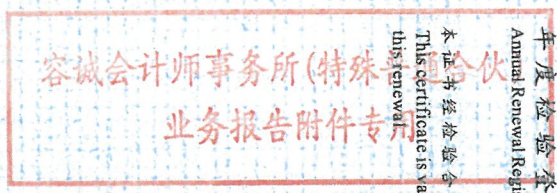 容诚会计师事务所(特殊普通合伙
业务报告附件专用
年度检验登
Annual Renewal Regi
本证书经检验合
This certificate is va
this renewal.